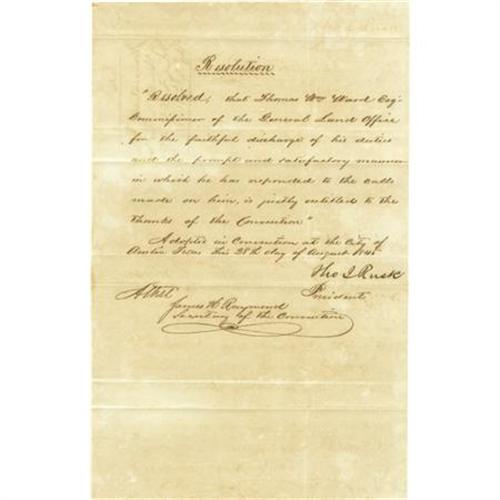 Resolution
"Resolved, that Thomas Wm Ward Esqr
Commissioner of the General Land Office
for the faithful discharge of his duties
and the prompt and satisfactory manner
in which he has responded to the calls
made on him, is justly entitled to the
thanks of the Convention"
Adopted in Convention at the City of
Austin Texas this 28th day of August 1845
Tho J Rusk
President
Attest
James H Raymond
Secretary of the Convention